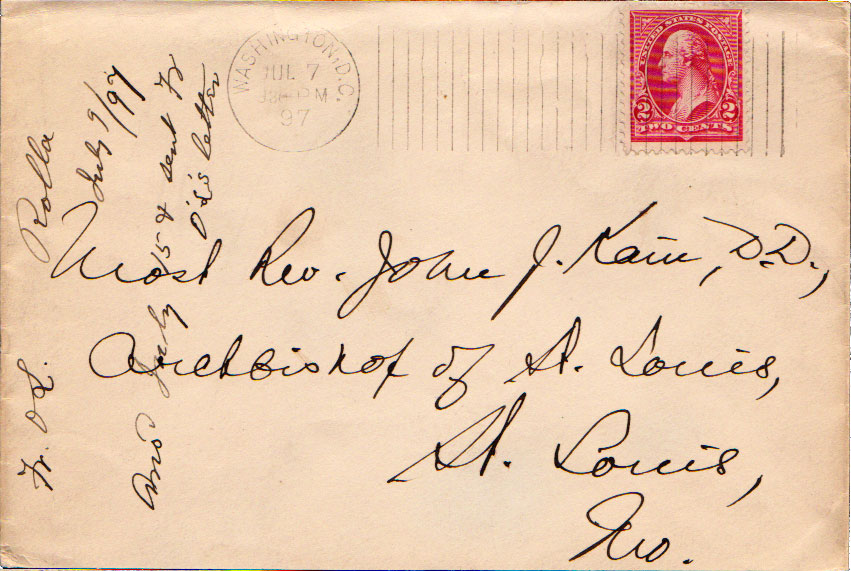 WASHINGTON, D.C.
JUL 7
PM
97
UNITED STATES POSTAGE
2 2
TWO CENTS
Most Rev. John J. Kain, D.D.,
Archbishop of St. Louis,
St. Louis,
Mo.
Fr. O'L. Rolla
July 9/97
Ans July 15 & sent Fr
O'L's letter